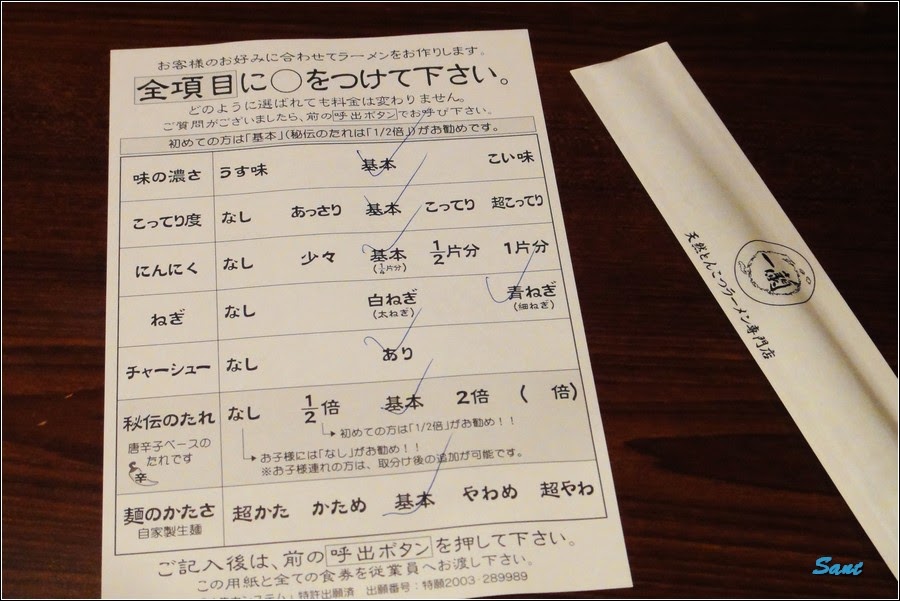 お客様のお好みに合わせてラーメンをお作りします。
全項目に○をつけて下さい。
どのように選ばれても料金は変わりません。
ご質問がございましたら、前の呼出ボタンでお呼び下さい。
初めての方は「基本」(秘伝のたれは「1/2倍」)がお勧めです。
味の濃さ うす味 基本 こい味
こってり度 なし あっさり 基本 こってり 超こってり
にんにく なし 少々 基本 1/2片分 1片分
(1/4片分)
ねぎ なし 白ねぎ 青ねぎ
(太ねぎ) (細ねぎ)
チャーシュー なし あり
秘伝のたれ なし 1/2倍 基本 2倍 ( 倍)
唐辛子ベースの
たれです
辛
初めての方は「1/2倍」がお勧め!!
お子様には「なし」がお勧め!!
※お子様連れの方は、取分け後の追加が可能です。
麺のかたさ 超かた かため 基本 やわめ 超やわ
自家製生麺
ご記入後は、前の呼出ボタンを押して下さい。
この用紙と全ての食券を従業員へお渡し下さい。
システム」特許出願済 出願番号:特願2003-289989
一蘭
天然とんこつラーメン専門店
Sant